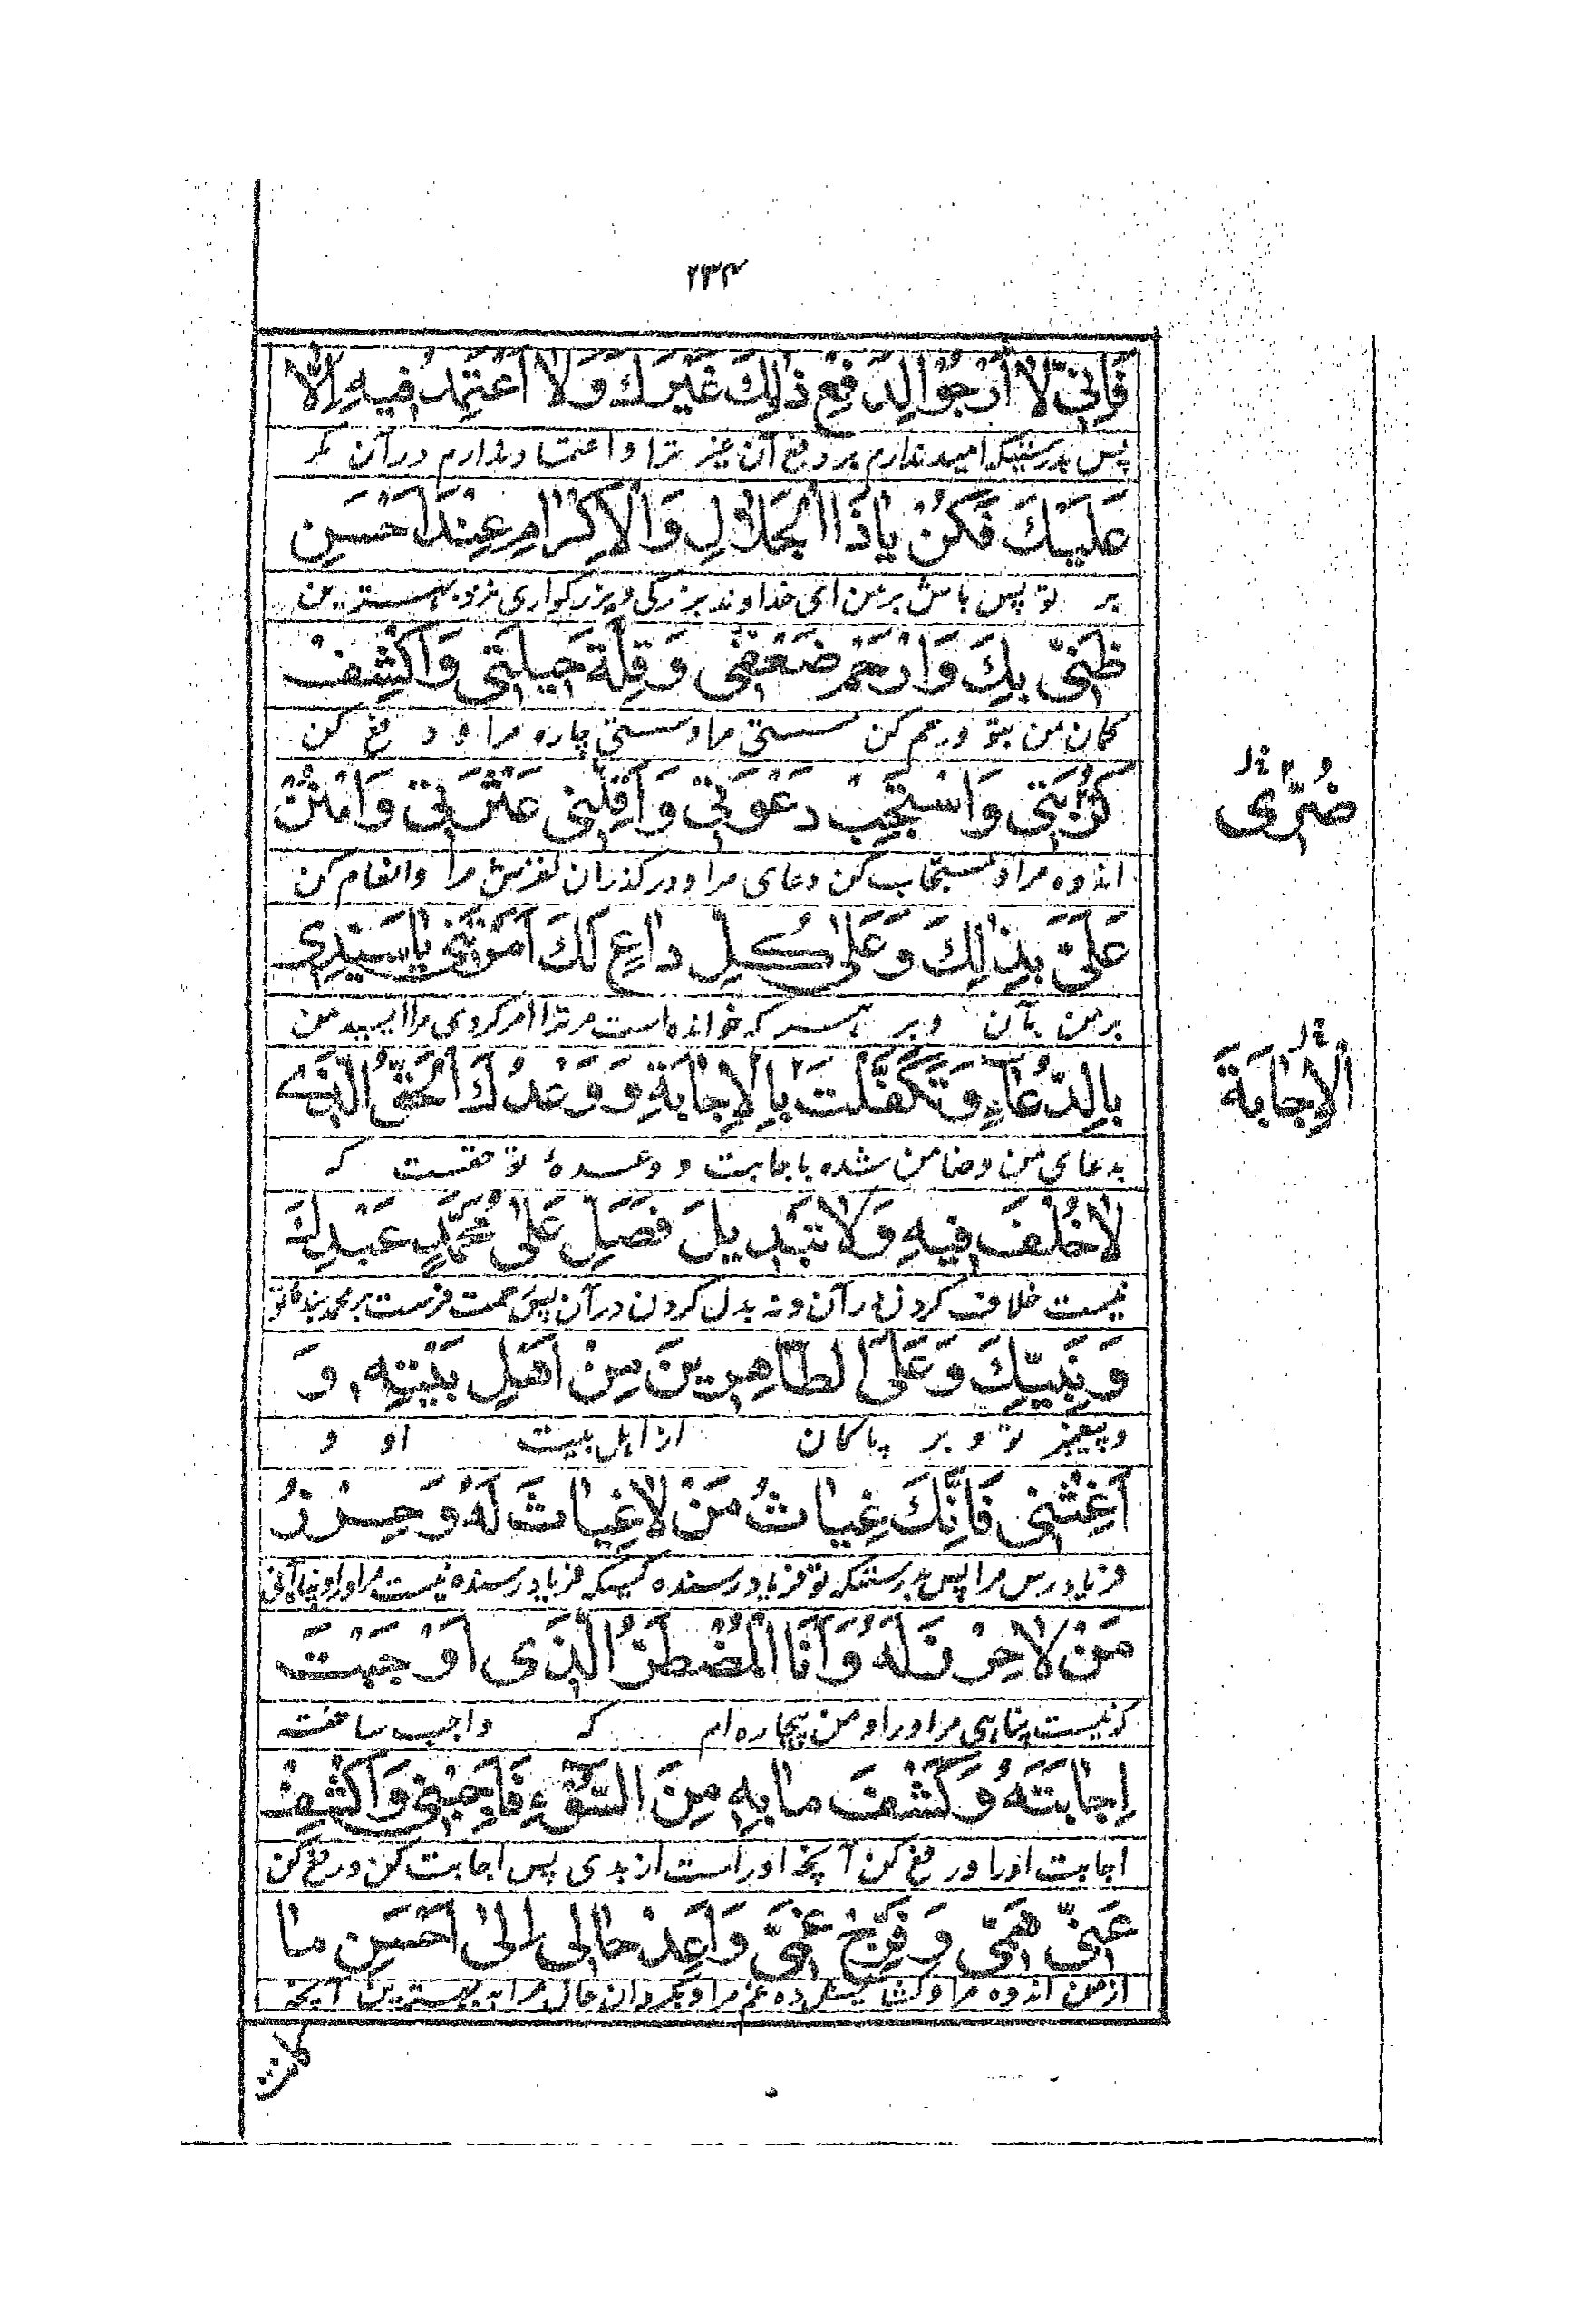 ۲۳۴
فَاِنّی لٰا اَرْجُوا لِدَفْعِ ذٰلِكَ غَیْرَكَ وَلٰا اَعْتَمِدُ فیهِ اِلّٰا
پس بدرستیکه امید ندارم بر دفع آن غیر ترا و اعتماد ندارم در آن مگر
عَلَیْكَ فَكُنْ یٰا ذَا الْجَلٰالِ وَالْاِكْرٰامِ عِنْدَ اَحْسَنِ
بر تو پس باش بر من ای خداوند بزرگی و بزرگواری نزد بهترین
ظَنّی بِكَ وَارْحَمْ ضَعْفی وَقِلَّةَ حیلَتی وَاكْشِفْ
گمان من بتو و رحم کن سستی مرا و سستی چاره مرا و دفع کن
كُرْبَتی وَاسْتَجِبْ دَعْوَتی وَاَقِلْنی عَثْرَتی وَامْنُنْ
و م خ ل
ضُرّی
اندوه مرا و مستجاب کن دعای مرا و درگذران لغزش مرا و انعام کن
عَلَیَّ بِذٰلِكَ وَعَلٰی كُلِّ دٰاعٍ لَكَ اَمَرْتَنی یٰا سَیِّدی
بر من بآن و بر هر که خوانده است مر ترا امر کردی مرا ای سید من
بِالدُّعٰآءِ وَتَكَفَّلْتَ بِالْاِجٰابَةِ وَوَعْدُكَ الْحَقُّ الَّذی
خ ل
الْاِجٰابَةَ
بدعای من و ضامن شده باجابت و وعدهٔ تو حقست که
لٰا خُلْفَ فیهِ وَلٰا تَبْدیلَ فَصَلِّ عَلٰی مُحَمَّدٍ عَبْدِكَ
نیست خلاف کردن در آن و نه بدل کردن در آن پس رحمت فرست بر محمد بندهٔ تو
وَنَبِیِّكَ وَعَلَی الطّٰاهِرینَ مِنْ اَهْلِ بَیْتِهِ وَ
و پیغمبر تو و بر پاکان از اهل بیت او و
اَغِثْنی فَاِنَّكَ غِیٰاثُ مَنْ لٰا غِیٰاثَ لَهُ وَحِرْزُ
فریاد رس مرا پس بدرستیکه تو فریاد رسنده کسیکه فریاد رسنده نیست مر او را و پناه آنی
مَنْ لٰا حِرْزَ لَهُ وَاَنَا الْمُضْطَرُّ الَّذی اَوْجَبْتَ
که نیست پناهی مر او را و من بیچاره ام که واجب ساخته
اِجٰابَتَهُ وَكَشْفَ مٰا بِهِ مِنَ السُّوْءِ فَاَجِبْنی وَاكْشِفْ
اجابت او را و رفع کن آنچه او راست از بدی پس اجابت کن و رفع کن
عَنّی هَمّی وَفَرِّجْ غَمّی وَاَعِدْ حٰالی اِلٰی اَحْسَنِ مٰا
از من اندوه مرا و گشایش ده غم مرا و بگردان حال مرا به بهترین آنچه
كٰانَتْ